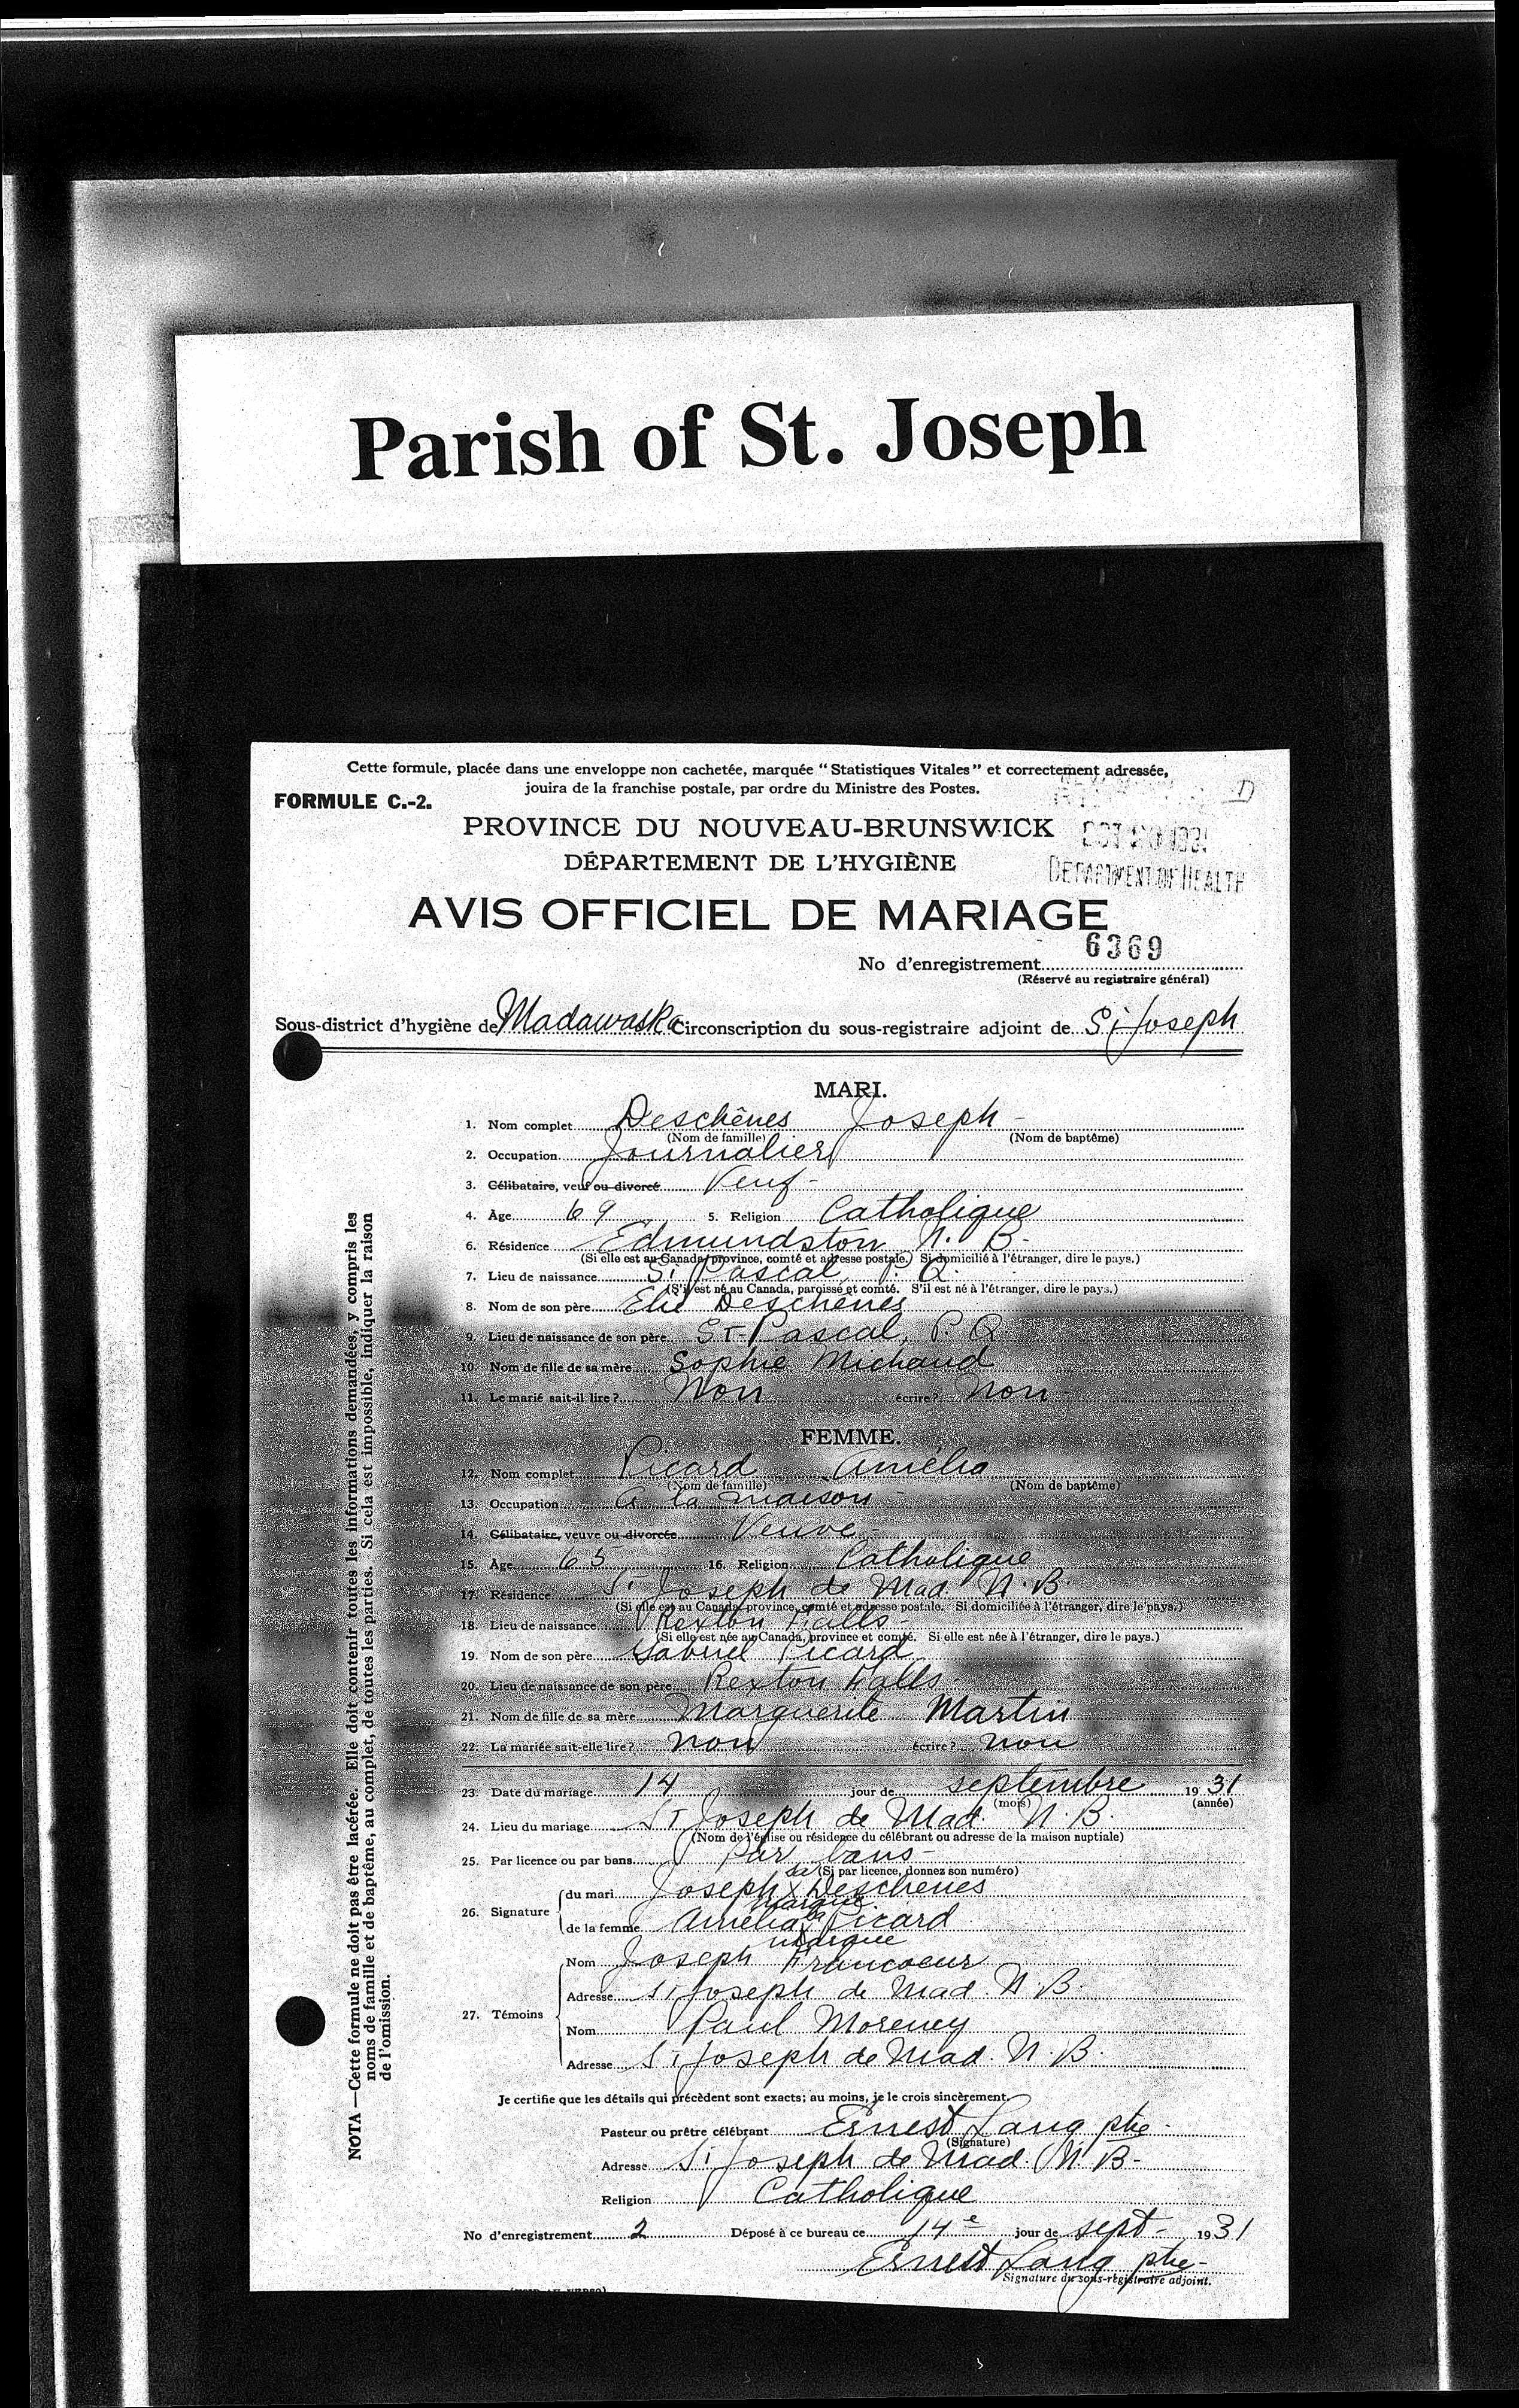 Parish of St. Joseph
Cette formule, placée dans une enveloppe non cachetée, marquée "Statistiques Vitales" et correctement adressée,
jouira de la franchise postale, par ordre du Ministre des Postes.
FORMULE C.-2.
PROVINCE DU NOUVEAU-BRUNSWICK
OCT 20 1931
DÉPARTEMENT DE L'HYGIÈNE
DEPARTMENT OF HEALTH
AVIS OFFICIEL DE MARIAGE
No d'enregistrement 6369
(Réservé au registraire général)
Sous-district d'hygiène de Madawaska Circonscription du sous-registraire adjoint de St Joseph
MARI.
1. Nom complet Deschênes Joseph -
(Nom de famille) (Nom de baptême)
2. Occupation Journalier
3. Célibataire, veuf ou divorcé Veuf -
4. Âge 69 5. Religion Catholique
6. Résidence Edmundston N. B-
(Si elle est au Canada, province, comté et adresse postale.) Si domicilié à l'étranger, dire le pays.)
7. Lieu de naissance St Pascal, P. Q.
(S'il est né au Canada, paroisse et comté. S'il est né à l'étranger, dire le pays.)
8. Nom de son père Elie Deschênes
9. Lieu de naissance de son père ST-Pascal, P. Q.
10. Nom de fille de sa mère Sophie Michaud
11. Le marié sait-il lire? Non écrire? Non
FEMME.
12. Nom complet Picard Amélia
(Nom de famille) (Nom de baptême)
13. Occupation A la maison -
14. Célibataire, veuve ou divorcée Veuve -
15. Âge 65 16. Religion Catholique
17. Résidence St Joseph de Mad. N. B.
(Si elle est au Canada, province, comté et adresse postale. Si domiciliée à l'étranger, dire le pays.)
18. Lieu de naissance Rexton Falls -
(Si elle est née au Canada, province et comté. Si elle est née à l'étranger, dire le pays.)
19. Nom de son père Gabriel Picard
20. Lieu de naissance de son père Rexton Falls -
21. Nom de fille de sa mère Marguerite Martin
22. La mariée sait-elle lire? Non écrire? Non
23. Date du mariage 14 jour de septembre 1931
(mois) (année)
24. Lieu du mariage St Joseph de Mad. N. B.
(Nom de l'église ou résidence du célébrant ou adresse de la maison nuptiale)
25. Par licence ou par bans Par bans -
(Si par licence, donnez son numéro)
26. Signature
du mari Joseph sa X marque Deschenes
de la femme Amélia sa X marque Picard
27. Témoins
Nom Joseph Francoeur
Adresse St Joseph de Mad. N. B.
Nom Paul Morency
Adresse St Joseph de Mad. N. B.
Je certifie que les détails qui précèdent sont exacts; au moins, je le crois sincèrement.
Pasteur ou prêtre célébrant Ernest Lang ptre -
(Signature)
Adresse St Joseph de Mad. N. B-
Religion Catholique
No d'enregistrement 2 Déposé à ce bureau ce 14e jour de sept - 1931
Ernest Lang ptre -
Signature du sous-registraire adjoint.
NOTA —Cette formule ne doit pas être lacérée. Elle doit contenir toutes les informations demandées, y compris les
noms de famille et de baptême, au complet, de toutes les parties. Si cela est impossible, indiquer la raison
de l'omission.